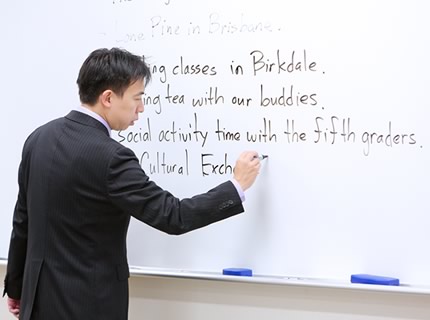 Lone Pine in Brisbane.
ting classes in Birkdale.
ing tea with our buddies.
Social activity time with the fifth graders.
Cultural Excha